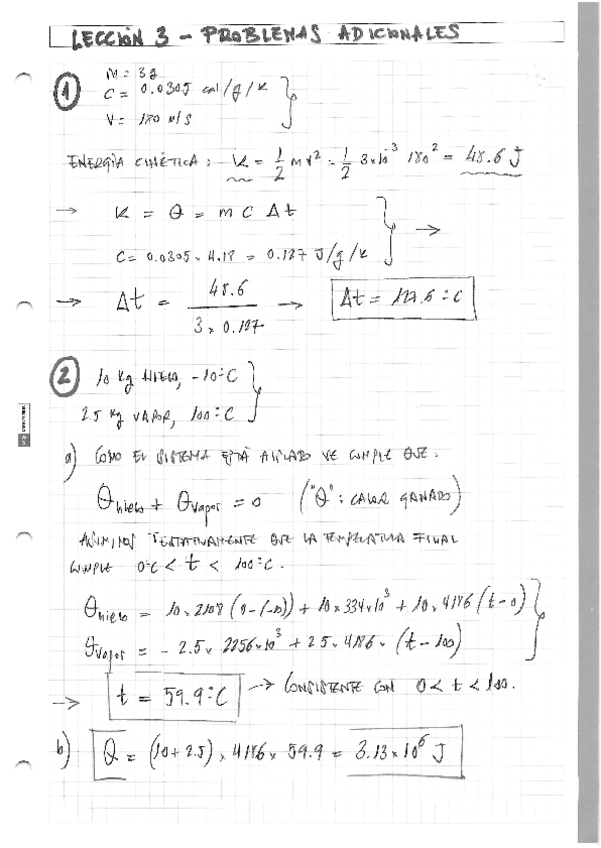 LECCIÓN 3 - PROBLEMAS ADICIONALES
1 m = 3g
C = 0.0305 cal/g/K
V = 180 m/s
ENERGÍA CINÉTICA: K = 1/2 m v² = 1/2 3×10⁻³ 180² = 48.6 J
→ K = Q = m C Δt
C = 0.0305 × 4.18 = 0.127 J/g/K →
→ Δt = 48.6 / 3 × 0.127 → Δt = 127.6 ºC
2 10 kg HIELO, -10ºC
2.5 kg VAPOR, 100ºC
a) COMO EL SISTEMA ESTÁ AISLADO SE CUMPLE QUE:
Qhielo + Qvapor = 0 ("Q": CALOR GANADO)
TENTATIVAMENTE QUE LA TEMPERATURA FINAL
CUMPLE 0ºC < t < 100ºC.
Qhielo = 10 × 2108 (0-(-10)) + 10 × 334×10³ + 10 × 4186 (t-0)
Qvapor = - 2.5 × 2256×10³ + 2.5 × 4186 × (t-100)
→ t = 59.9ºC → CONSISTENTE CON 0 < t < 100.
b) Q = (10+2.5) × 4186 × 59.9 = 3.13×10⁶ J